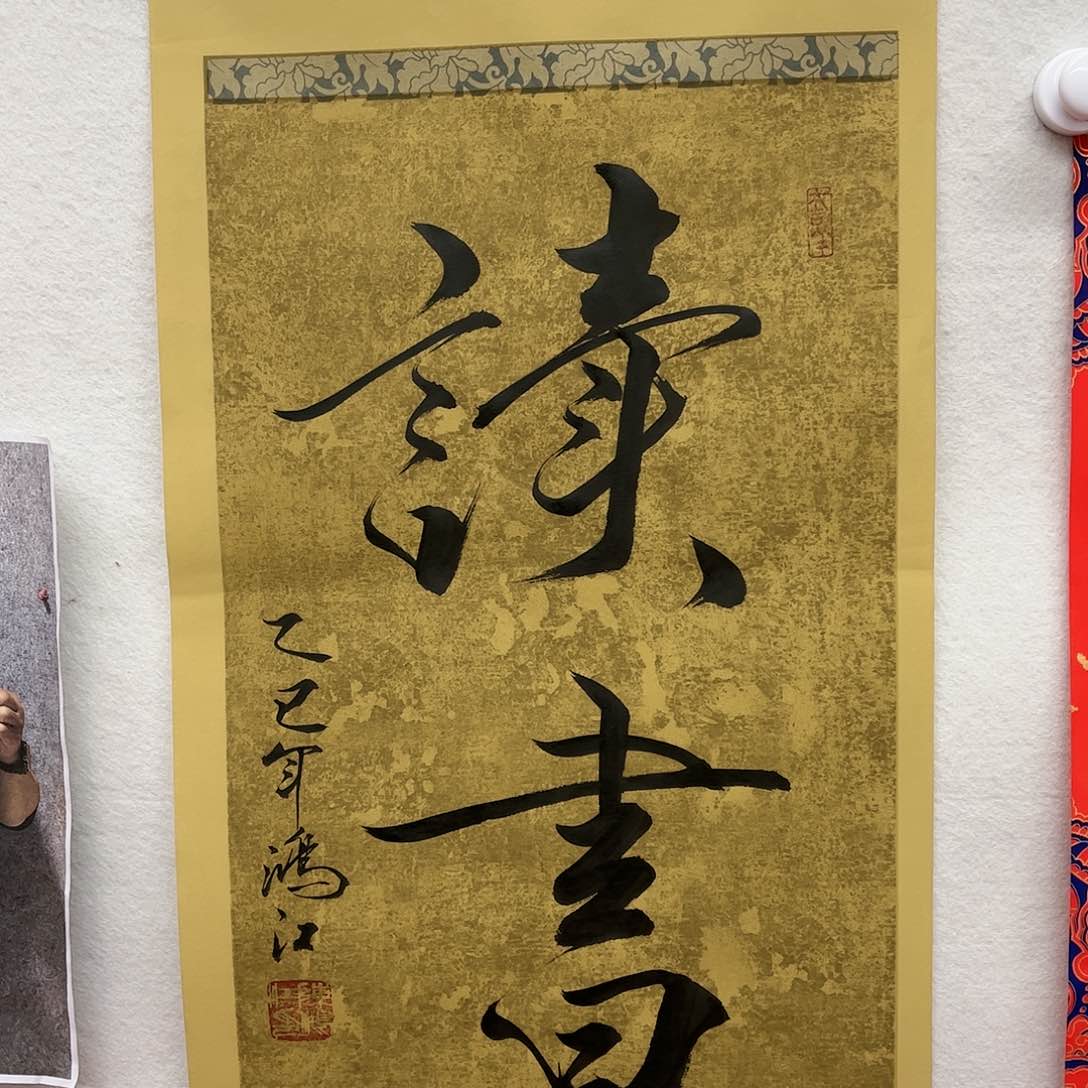 讀書
乙巳年鴻江